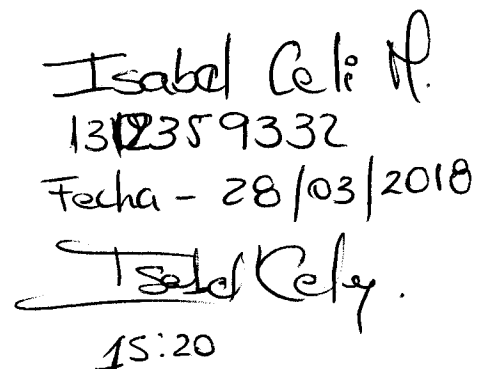 Isabel Celi M.
1312359332
Fecha - 28/03/2018
Isabel Celi
15:20